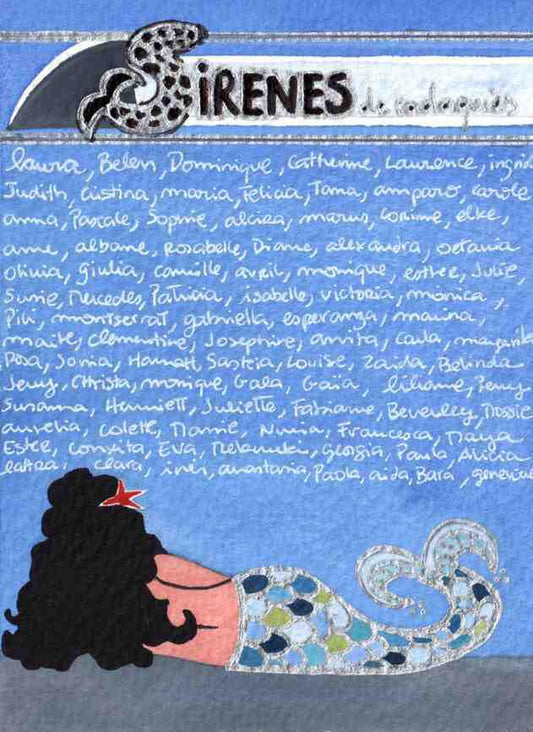 SIRENES de cadaqués
laura, Belen, Dominique, Catherine, Laurence, ingrid
Judith, Cristina, maria, Felicia, Tana, amparo, carole
anna, Pascale, Sophie, alcira, marus, corinne, elke,
anne, albane, Rosabelle, Diane, alexandra, octavia
Olivia, giulia, camille, avril, monique, esther, Julie,
Susie, Mercedes, Patricia, isabelle, victoria, monica,
Pili, montserrat, gabriella, esperanza, marina,
maite, clementine, Josephine, annita, carla, margarita
Rosa, Sonia, Louise, Zaida, Belinda
Jeny, Christa, monique, Gala, Gaia, liliane, Peny
Susanna, Henriett, Juliette, Fabiane, Beverley,
aurelia, colette, Nuria, Francesca, Maya
Ester, conxita, Eva, georgia, Paula, Alicia
clara, inès, anastasia, Paola, aida, Bara, genevieve